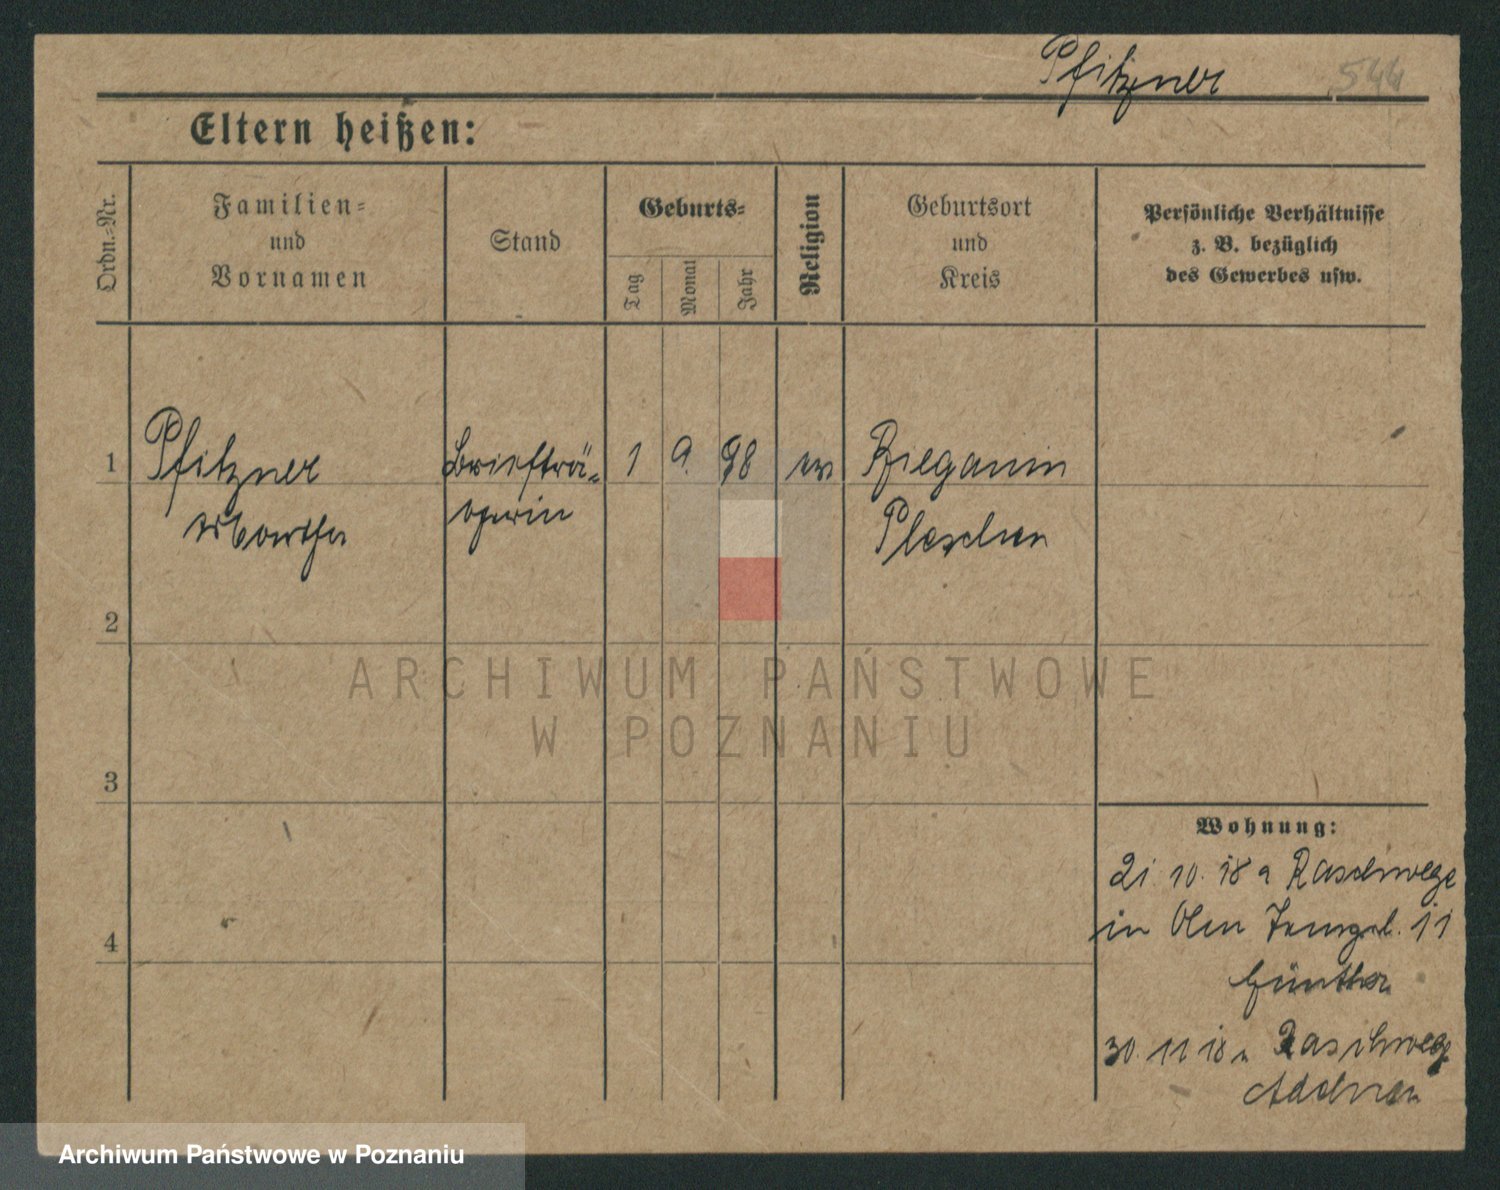 Pfitzner 544
Eltern heißen:
Ordn.-Nr.
Familien-
und
Vornamen
Stand
Geburts-
Tag
Monat
Jahr
Religion
Geburtsort
und
Kreis
Persönliche Verhältnisse
z. B. bezüglich
des Gewerbes usw.
1 Pfitzner Briefträ- 1 9. 98 ev Bieganin
Martha gerin Pleschen
2
3
4
ARCHIWUM PAŃSTWOWE
W POZNANIU
Wohnung:
21. 10. 18 a Raschwege
in 11
Günther
30. 11 18 Raschwege
Archiwum Państwowe w Poznaniu